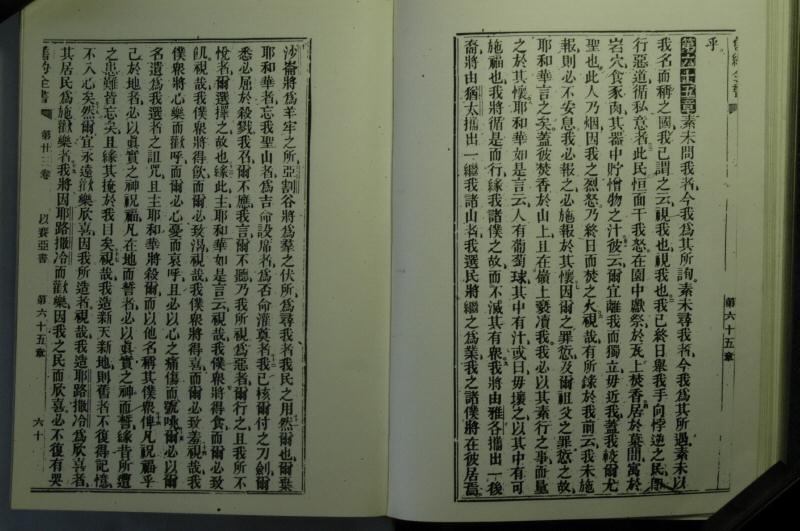 舊約全書
第六十五章
乎
第六十五章素未問我者今我為其所詢素未尋我者今我為其所遇素未以
我名而稱之國我已謂之云視我也視我也我已終日舉我手向悖逆之民即
行惡道循私意者此民恒面干我怒在園中獻祭於瓦上焚香居於墓間寓於
岩穴食豕肉其器中貯憎物之汁彼云爾宜離我而獨立毋近我蓋我較爾尤
聖也此人乃烟因我之烈怒乃終日而焚之火視哉有所錄於我前云我未施
報則必不安息我必報之必施報於其懷因爾之罪愆及爾祖父之罪愆之故
耶和華言之矣蓋彼焚香於山上且在嶺上褻瀆我我必以其素行之事而量
之於其懷耶和華如是言云人有葡萄球其中有汁或曰毋壞之以其中有可
施福也我將循是而行緣我諸僕之故而不滅其有衆我將由雅各攜出一後
裔將由猶太攜出一繼我諸山者我選民將繼之為業我之諸僕將在彼居焉
沙崙將為羊牢之所亞割谷將為羣之伏所為尋我者我民之用然爾也爾棄
耶和華者忘我聖山者為吉命設席者為否命灌奠者我已核爾付之刀劍爾
悉必屈於殺戮我召爾不應我言爾不聽乃我所視為惡者爾行之且我所不
悅者爾選擇之故也緣此主耶和華如是言云視哉我僕衆將得食而爾必致
飢視哉我僕衆將得飲而爾必致渴視哉我僕衆將得喜而爾必致羞視哉我
僕衆將心樂而歡呼而爾必心憂而哀呼且必以心之痛傷而號咷爾必以爾
名遺為我選者之詛咒且主耶和華將殺爾而以他名稱其僕衆俾凡祝福乎
己於地者必以眞實之神祝福凡在地而誓者必以眞實之神而誓緣昔所遭
之患難皆忘矣且緣其掩於我目矣視哉我造新天新地則舊者不復得記憶
不入心矣然爾宜永遠歡樂欣喜因我所造者視哉我造耶路撒冷為欣喜者
其居民為施歡樂者我將因耶路撒冷而歡樂因我之民而欣喜必不復有哭
舊約全書
第廿三卷
以賽亞書
第六十五章
六十